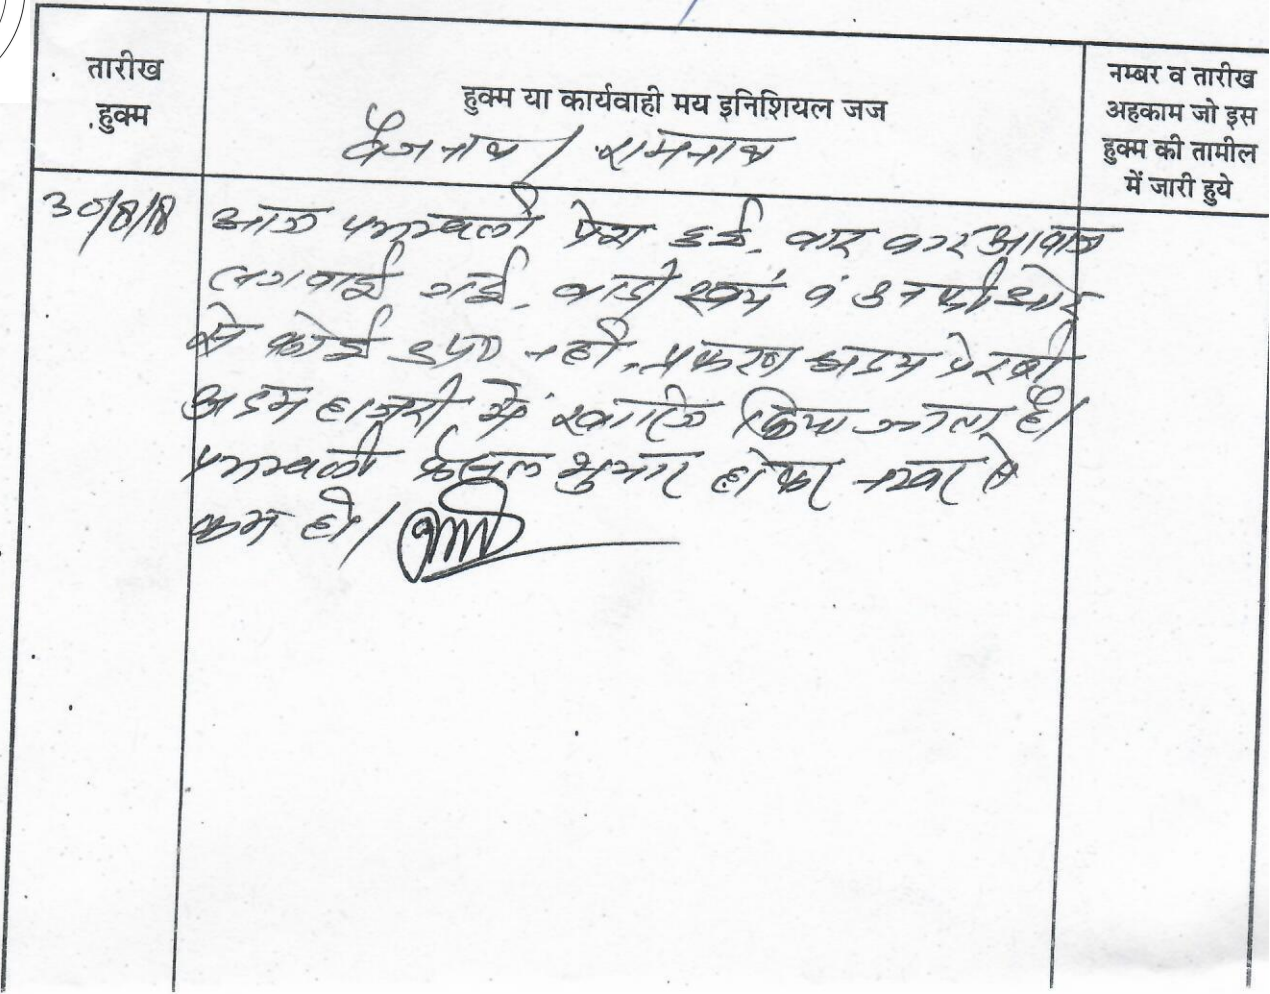 तारीख
हुक्म
हुक्म या कार्यवाही मय इनिशियल जज
नम्बर व तारीख
अहकाम जो इस
हुक्म की तामील
में जारी हुये
बैजनाथ / रामनाथ
30/8/18
आज पत्रावली पेश हुई. बार बार आवाज
लगवाई गई. वादी स्वयं व उनकी ओर
से कोई उप0 नही. प्रकरण अदम पेरवी
अदम हाजरी में खारिज किया जाता है।
पत्रावली फैसल शुमार होकर नम्बर से
कम हो।